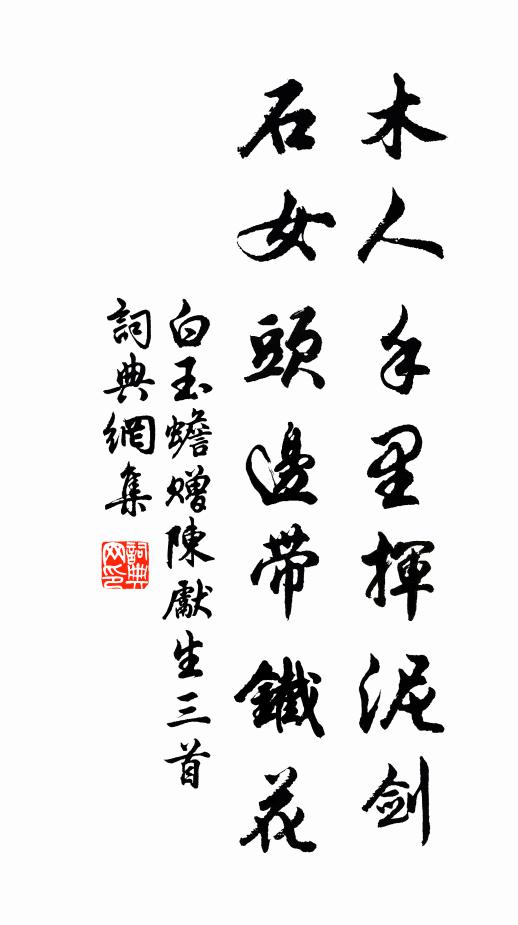 木人手里揮泥剑
石女頭邊帶鐵花
白玉蟾赠陳獻生三首
詞典網集
詞典网印